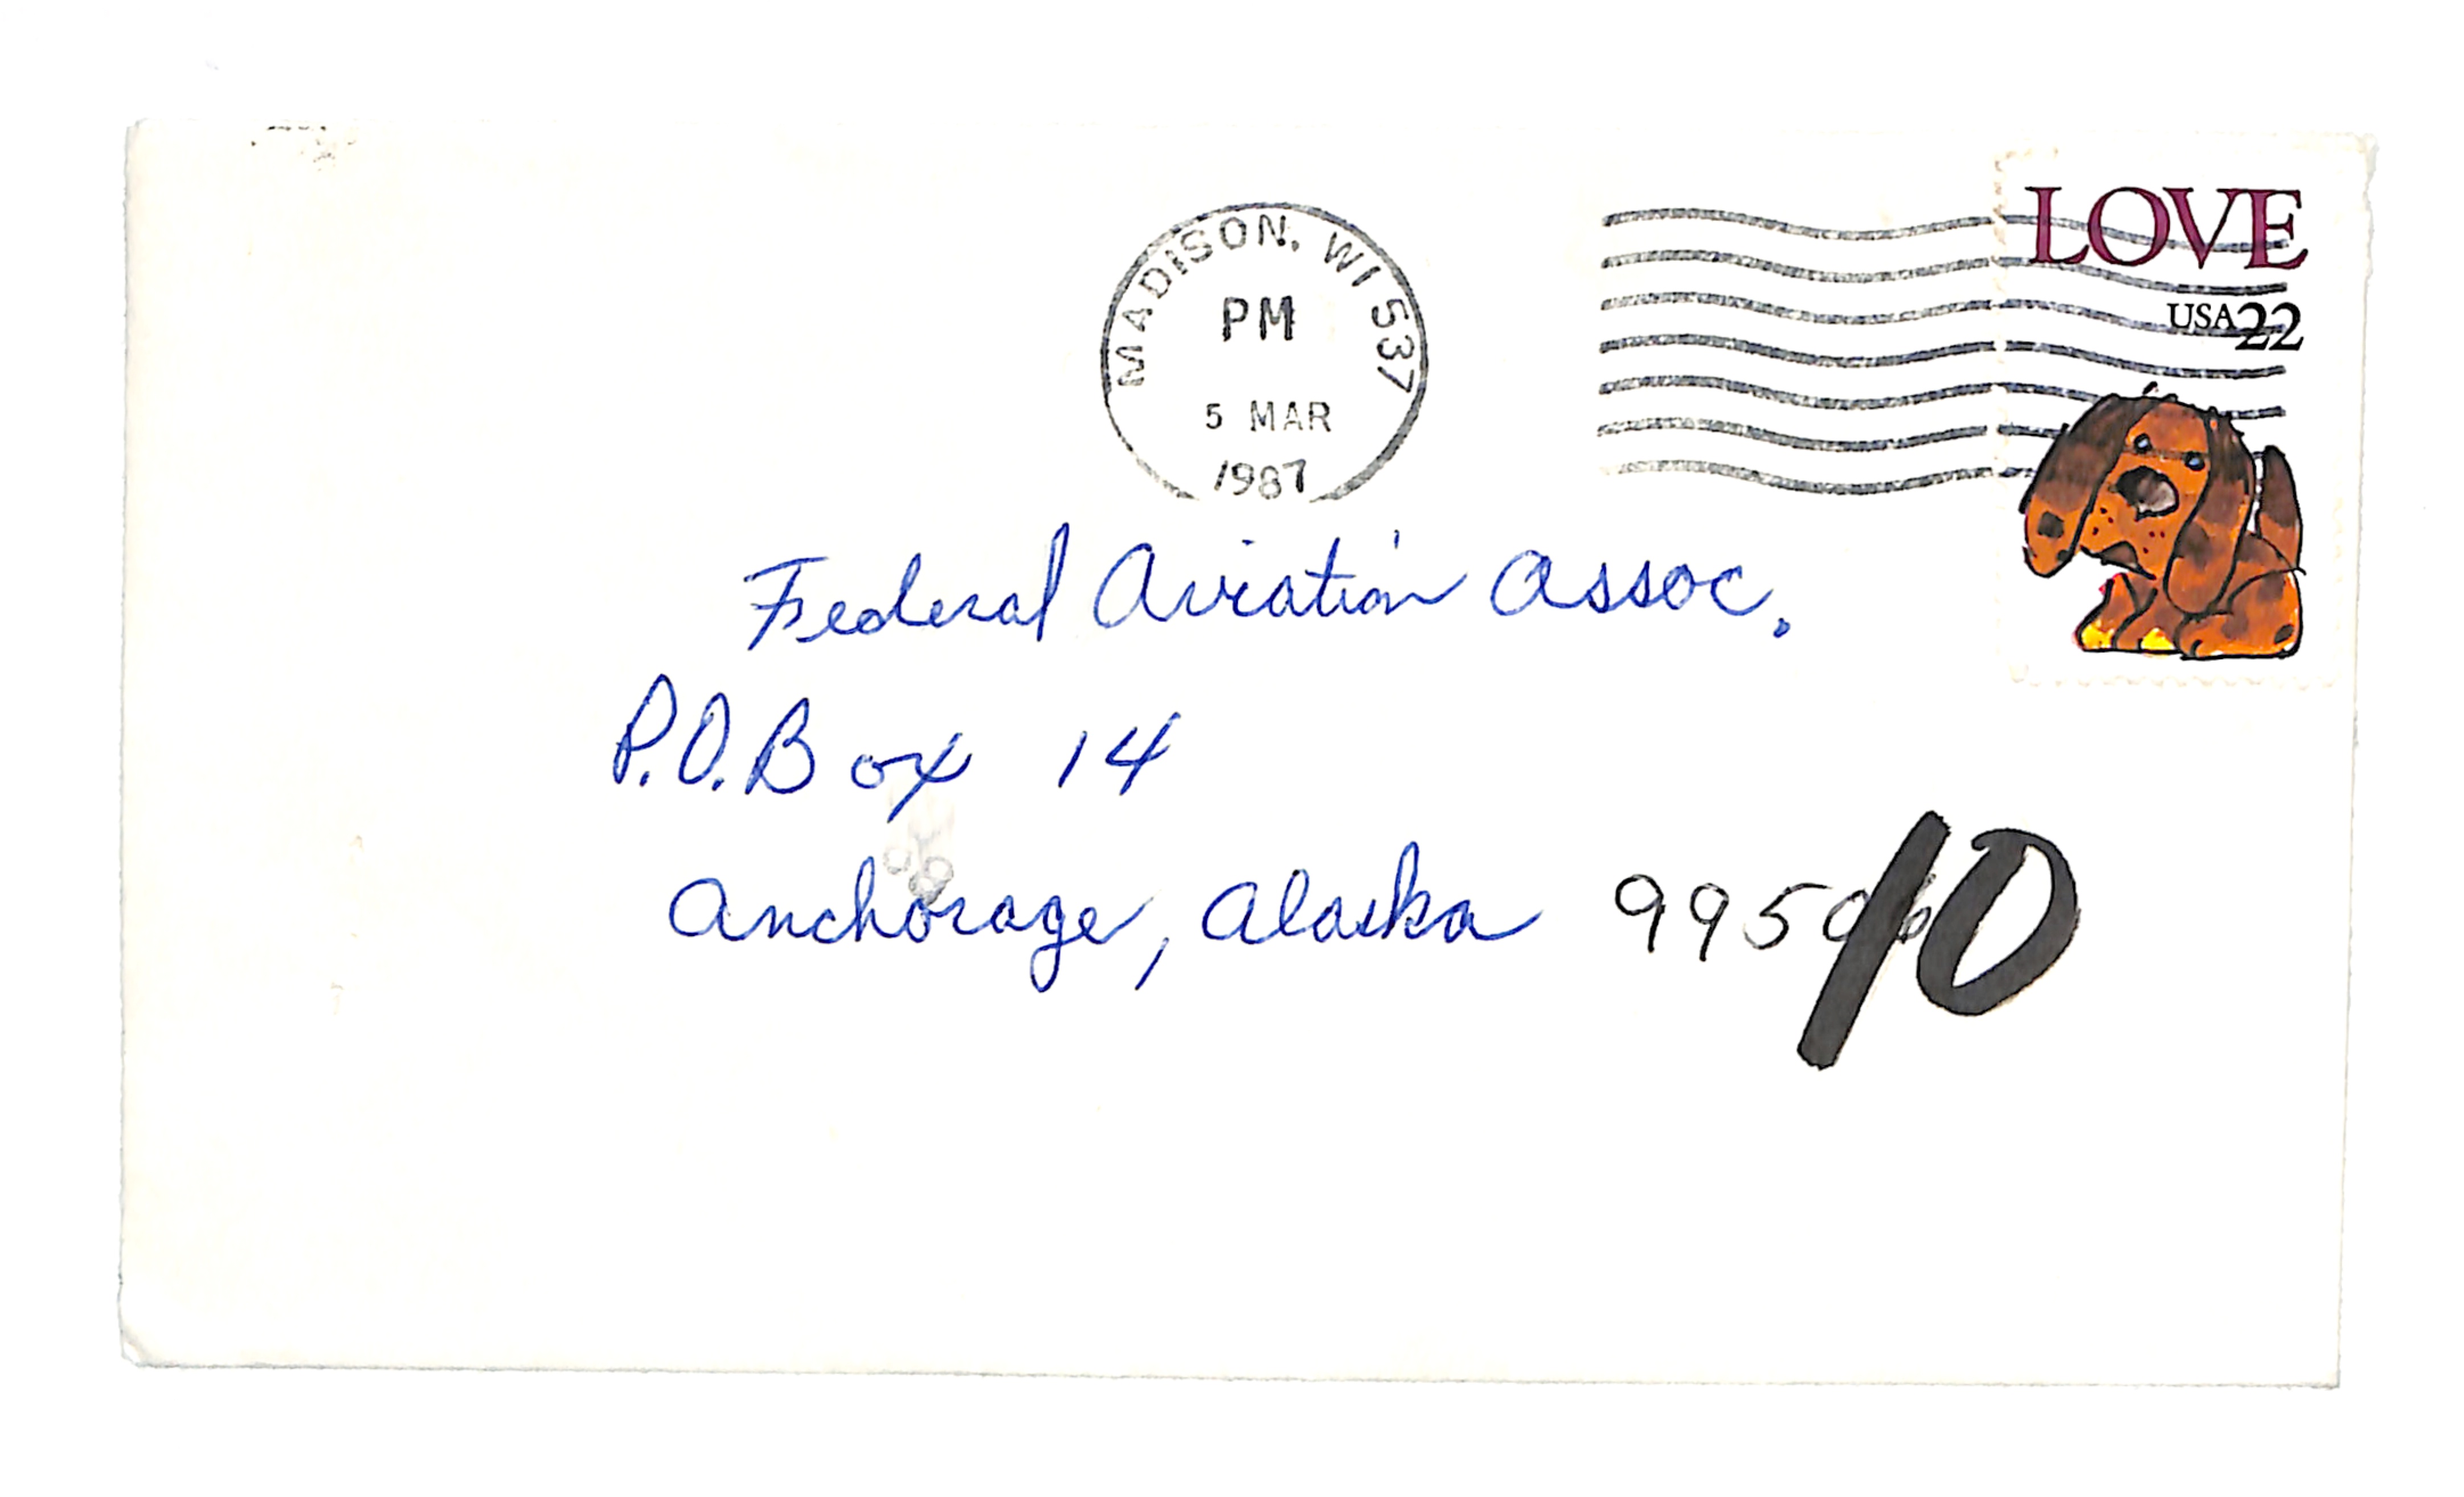 MADISON, WI 537
PM
5 MAR
1987
LOVE
USA 22
Federal Aviation Assoc.
P.O. Box 14
Anchorage, Alaska 995
10